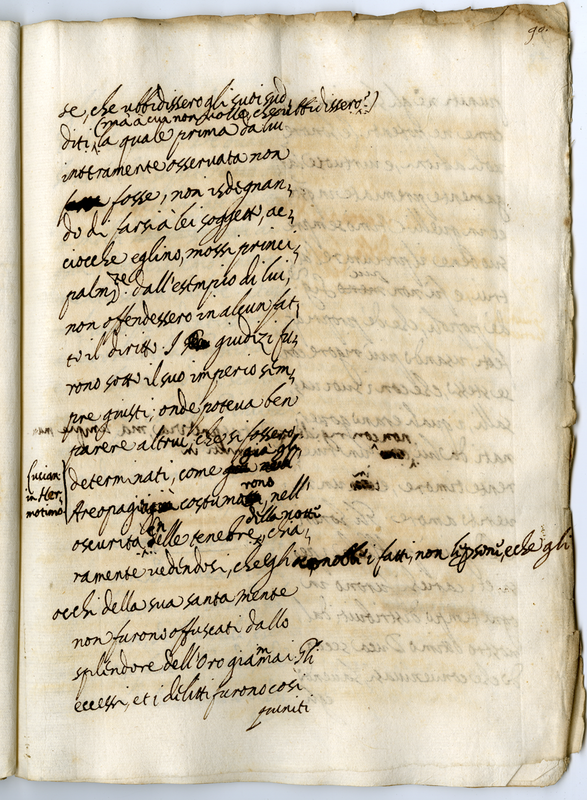 90.
se, che ubbidissero gli suoi sud,
(mà à cui non volle, che ubbidissero?)
diti, la quale prima da lui
interamente osservata non
fosse, non isdegnan,
do di farsi à lei soggetto, ac,
ciocche eglino, mossi princi,
palm.te dall'esempio di lui,
non offendessero in alcun fat,
to il diritto. I giudizi fu,
rono sotto il suo imperio sim,
pre giusti; onde poteva ben
parere altrui, che si fossero
determinati, come già gli
Lucian.
in Her,
motimo
Areopagi costumarono, nell'
oscurità delle tenebre della notte, chia,
ramente vedendosi, che gli i fatti, non le persone, e che gli
occhi della sua santa mente
non furono offuscati dallo
splendore dell'oro giammai. Gli
eccessi, et i delitti furono così
puniti